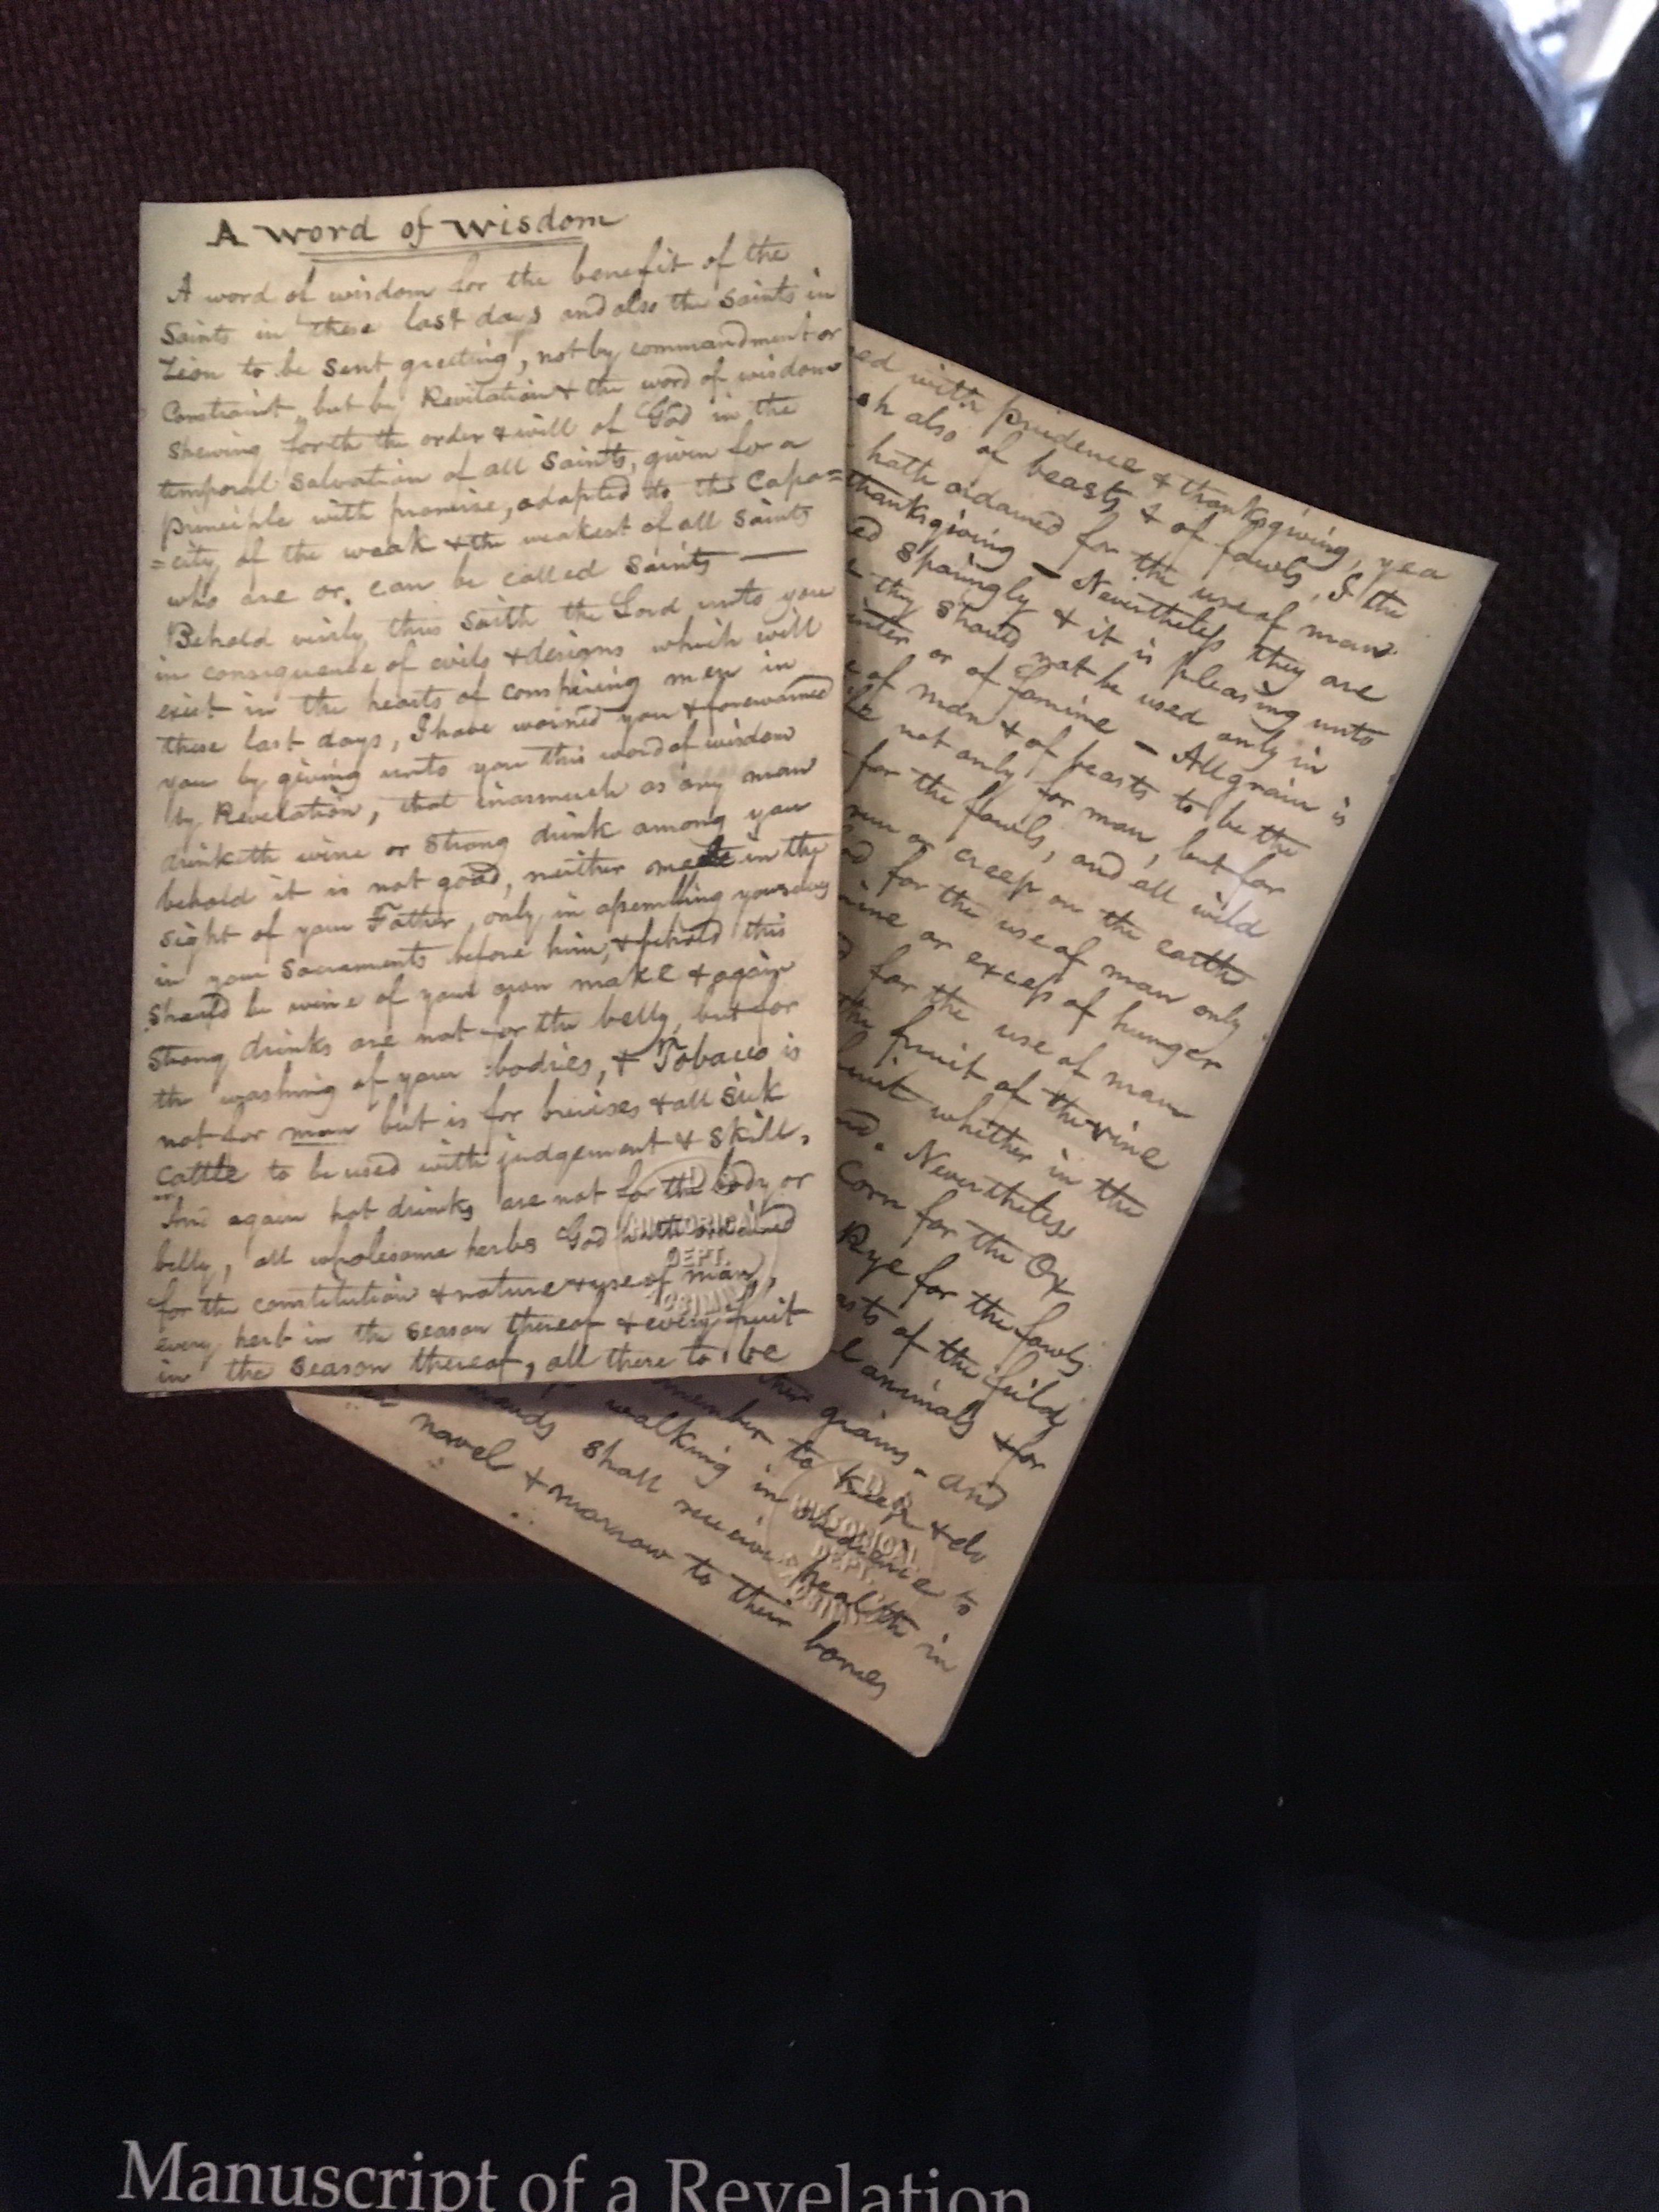 A word of wisdom
A word of wisdom for the benefit of the
Saints in these last days and also the Saints in
Zion to be sent greeting, not by commandment or
Constraint but by Revilation & the word of wisdom
shewing forth the order & will of God in the
temporal salvation of all Saints, given for a
principle with promise, adapted to the Capa=
=city of the weak & the weakest of all Saints
who are or can be called Saints —
Behold verily thus saith the Lord unto you
in consequence of evils & designs which will
exist in the hearts of conspiring men in
these last days, I have warned you & forewarned
you by giving unto you this word of wisdom
by Revelation, that inasmuch as any man
drinketh wine or strong drink among you
behold it is not good, neither in the
sight of your Father, only in assembling yourselves
in your Sacraments before him, & behold this
should be wine of your own make & again
Strong drinks are not for the belly, but for
the washing of your bodies, & Tobacco is
not for man but is for bruises & all sick
cattle to be used with judgement & skill,
And again hot drinks are not for the body or
belly, all wholesome herbs God hath ordained
for the constitution & nature & use of man,
every herb in the season thereof & every fruit
in the season thereof, all these to be
HISTORICAL
DEPT.
ed with prudence & thanksgiving, yea
sh also of beasts & of fowls, I the
hath ordained for the use of man
thanksgiving — Nevertheless they are
ed sparingly & it is pleasing unto
they should not be used only in
inter or of famine — All grain is
e of man & of beasts to be the
not only for man, but for
for the fowls, and all wild
run or creep on the earth
for the use of man only
mine or excess of hunger
for the use of man
the fruit of the vine
ruit whither in the
nd. Nevertheless
Corn for the Ox
Rye for the fowls
asts of the fields
l animals & for
ther grains. and
member to keep & do
walking in obedience to
mands shall receive health in
navel & marrow to their bones
HISTORICAL
DEPT.
Manuscript of a Revelation